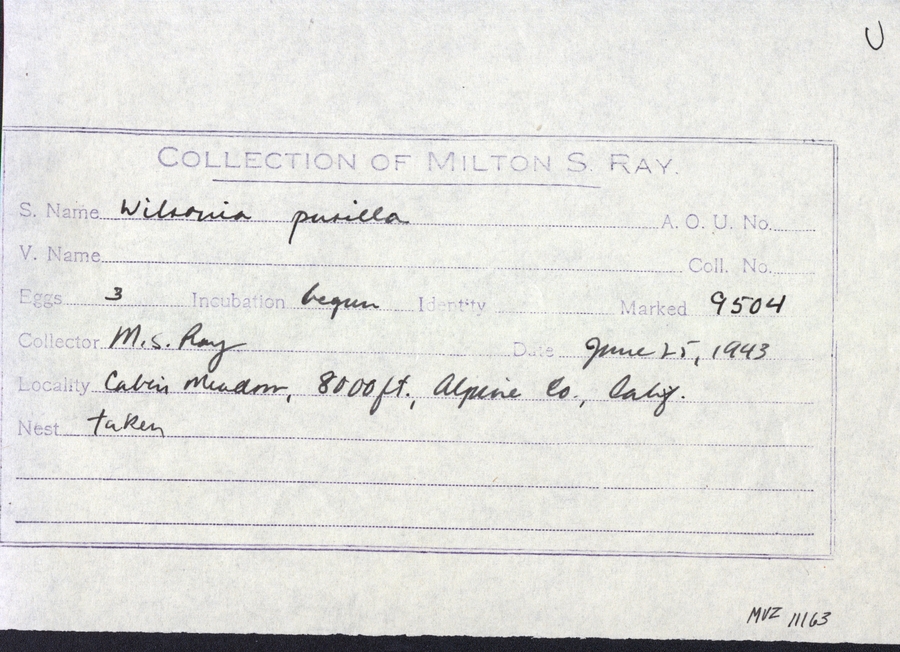 U
COLLECTION OF MILTON S. RAY.
S. Name Wilsonia pusilla A. O. U. No.
V. Name Coll. No.
Eggs 3 Incubation begun Identity Marked 9504
Collector M.S. Ray Date June 25, 1943
Locality Cabin Meadow, 8000 ft., Alpine Co., Calif.
Nest taken
MVZ 11163